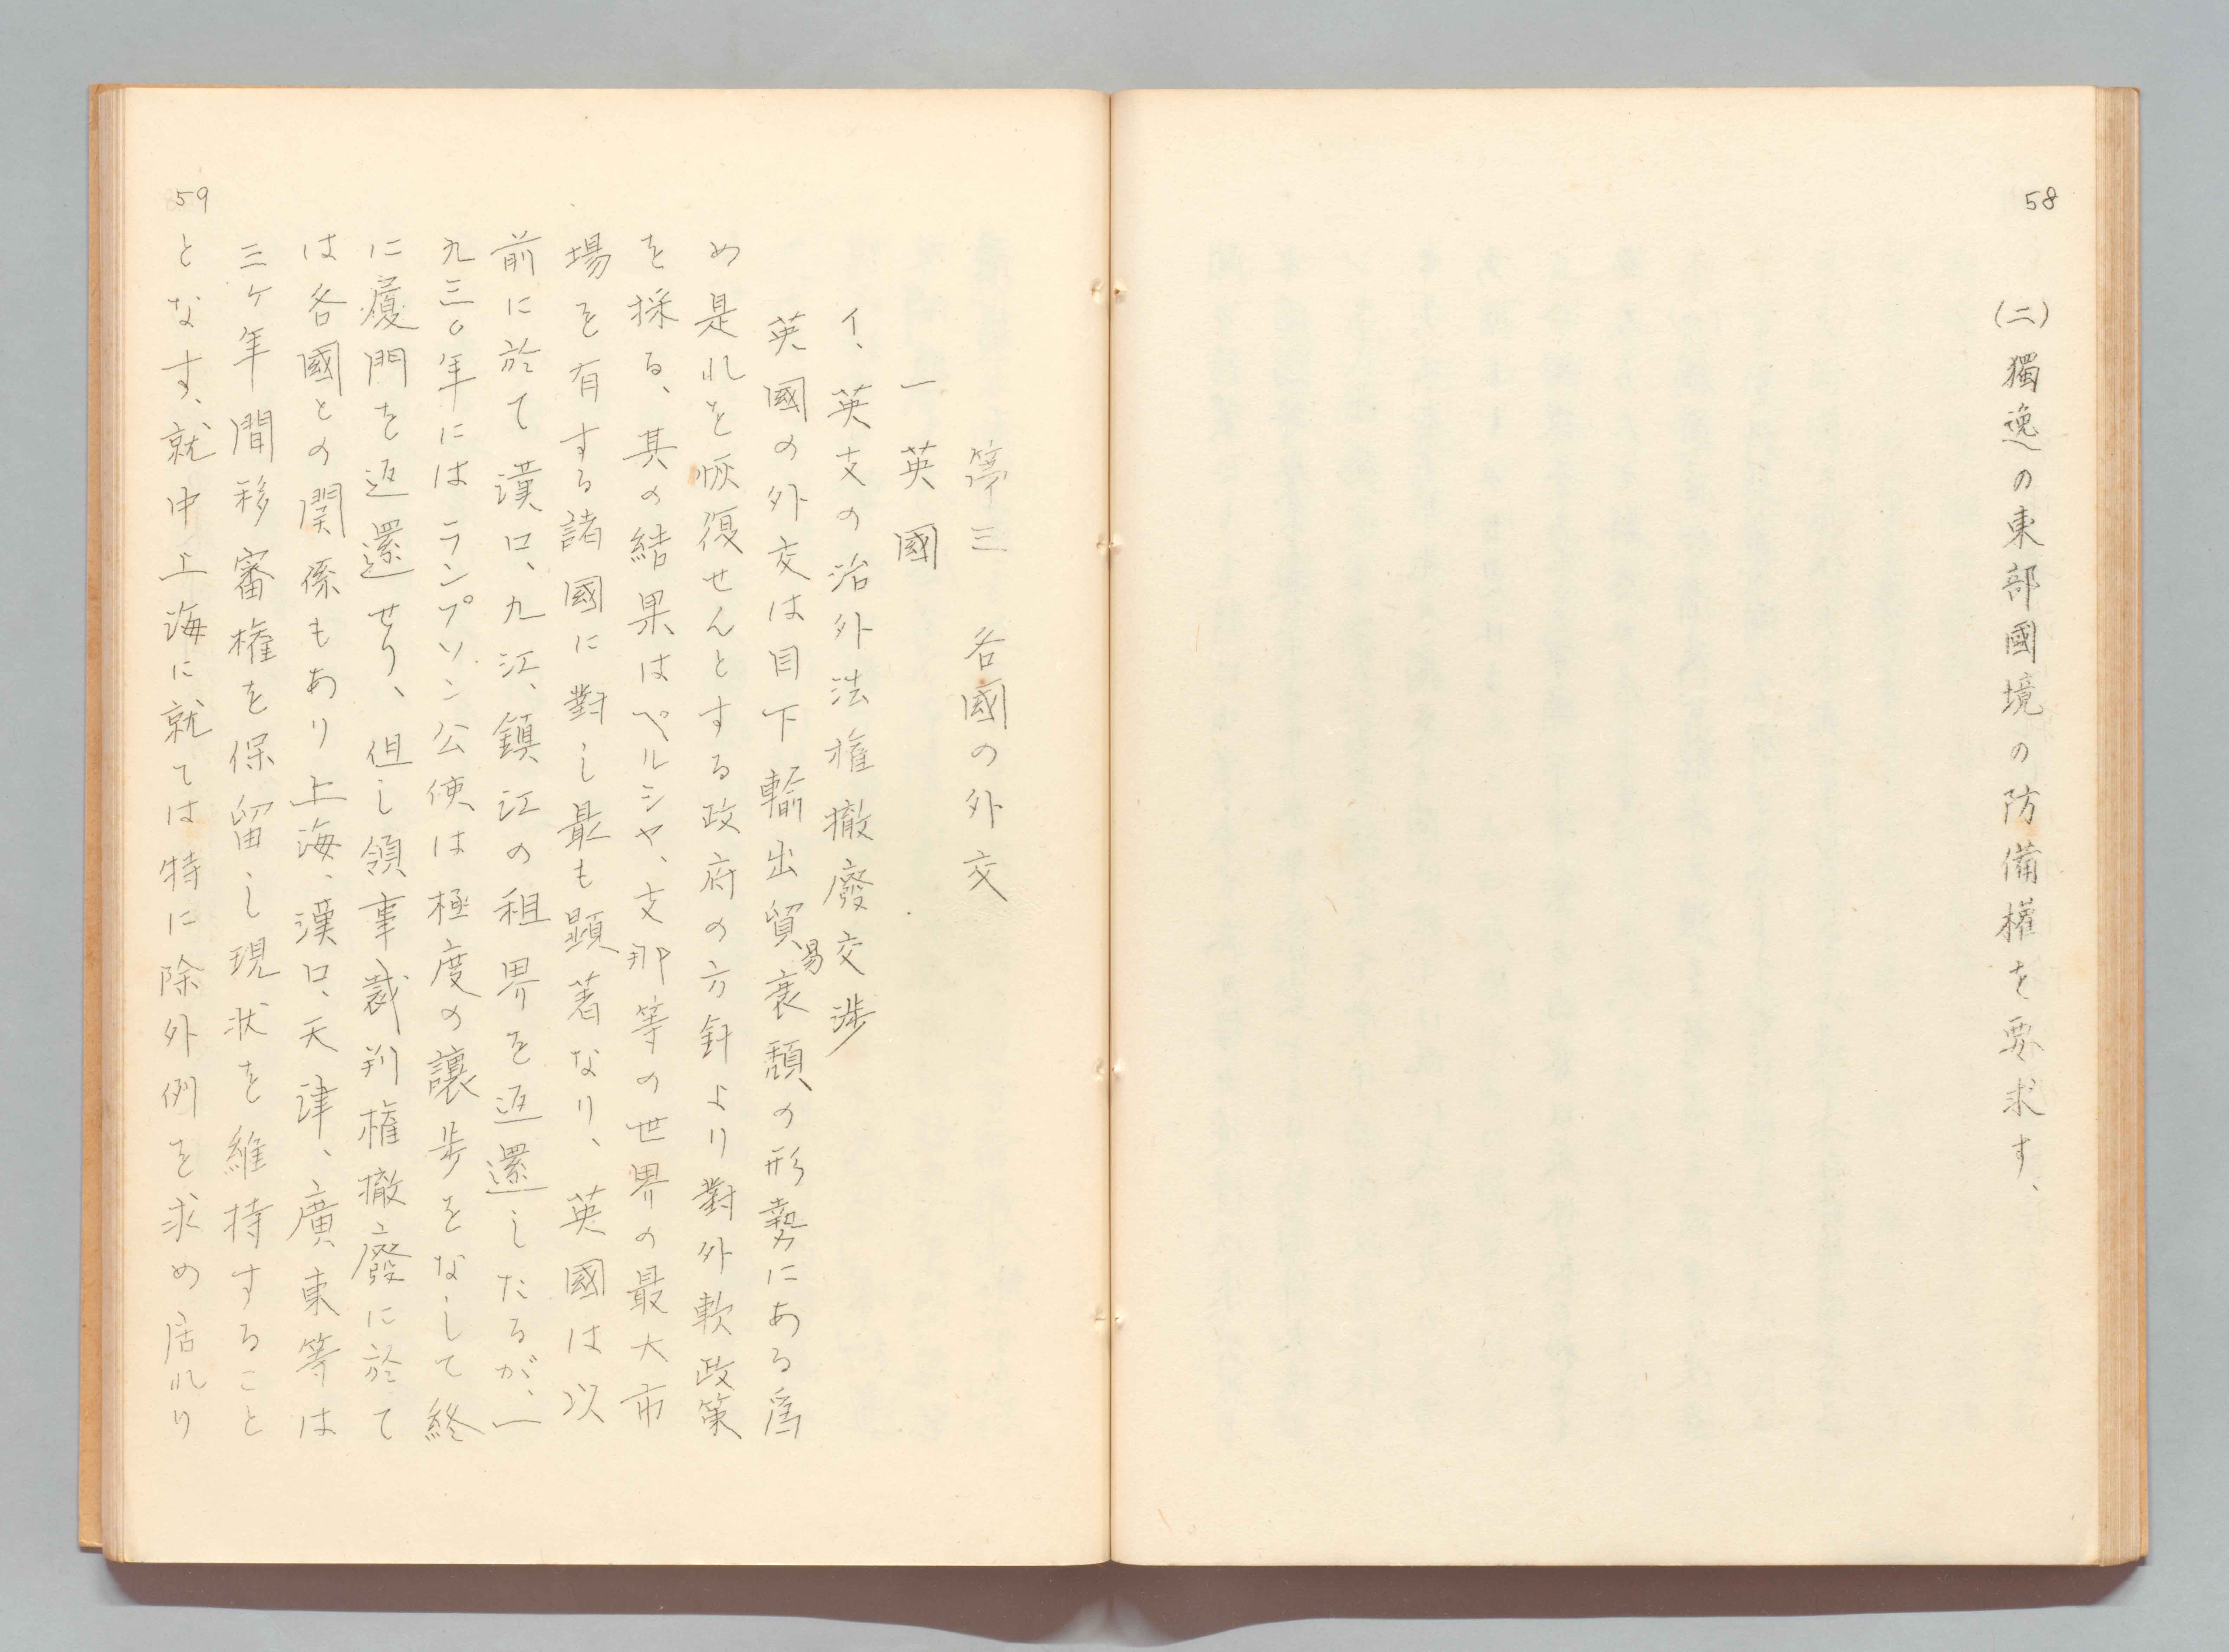 58
(二)獨逸の東部國境の防備權を要求す、
第三 各國の外交
一 英國
イ、英支の治外法権撤廢交渉
英國の外交は目下輸出貿易衰頽の形勢にある爲
め是れを恢復せんとする政府の方針より對外軟政策
を採る、其の結果はペルシヤ、支那等の世界の最大市
場を有する諸國に對し最も顕著なり、英國は以
前に於て漢口、九江、鎮江の租界を返還したるが、一
九三〇年にはランプソン公使は極度の讓歩をなして終
に廈門を返還せり、但し領事裁判権撤廢に於て
は各國との関係もあり上海、漢口、天津、廣東等は
三ケ年間移審権を保留し現状を維持すること
となす、就中上海に就ては特に除外例を求め居れり
59